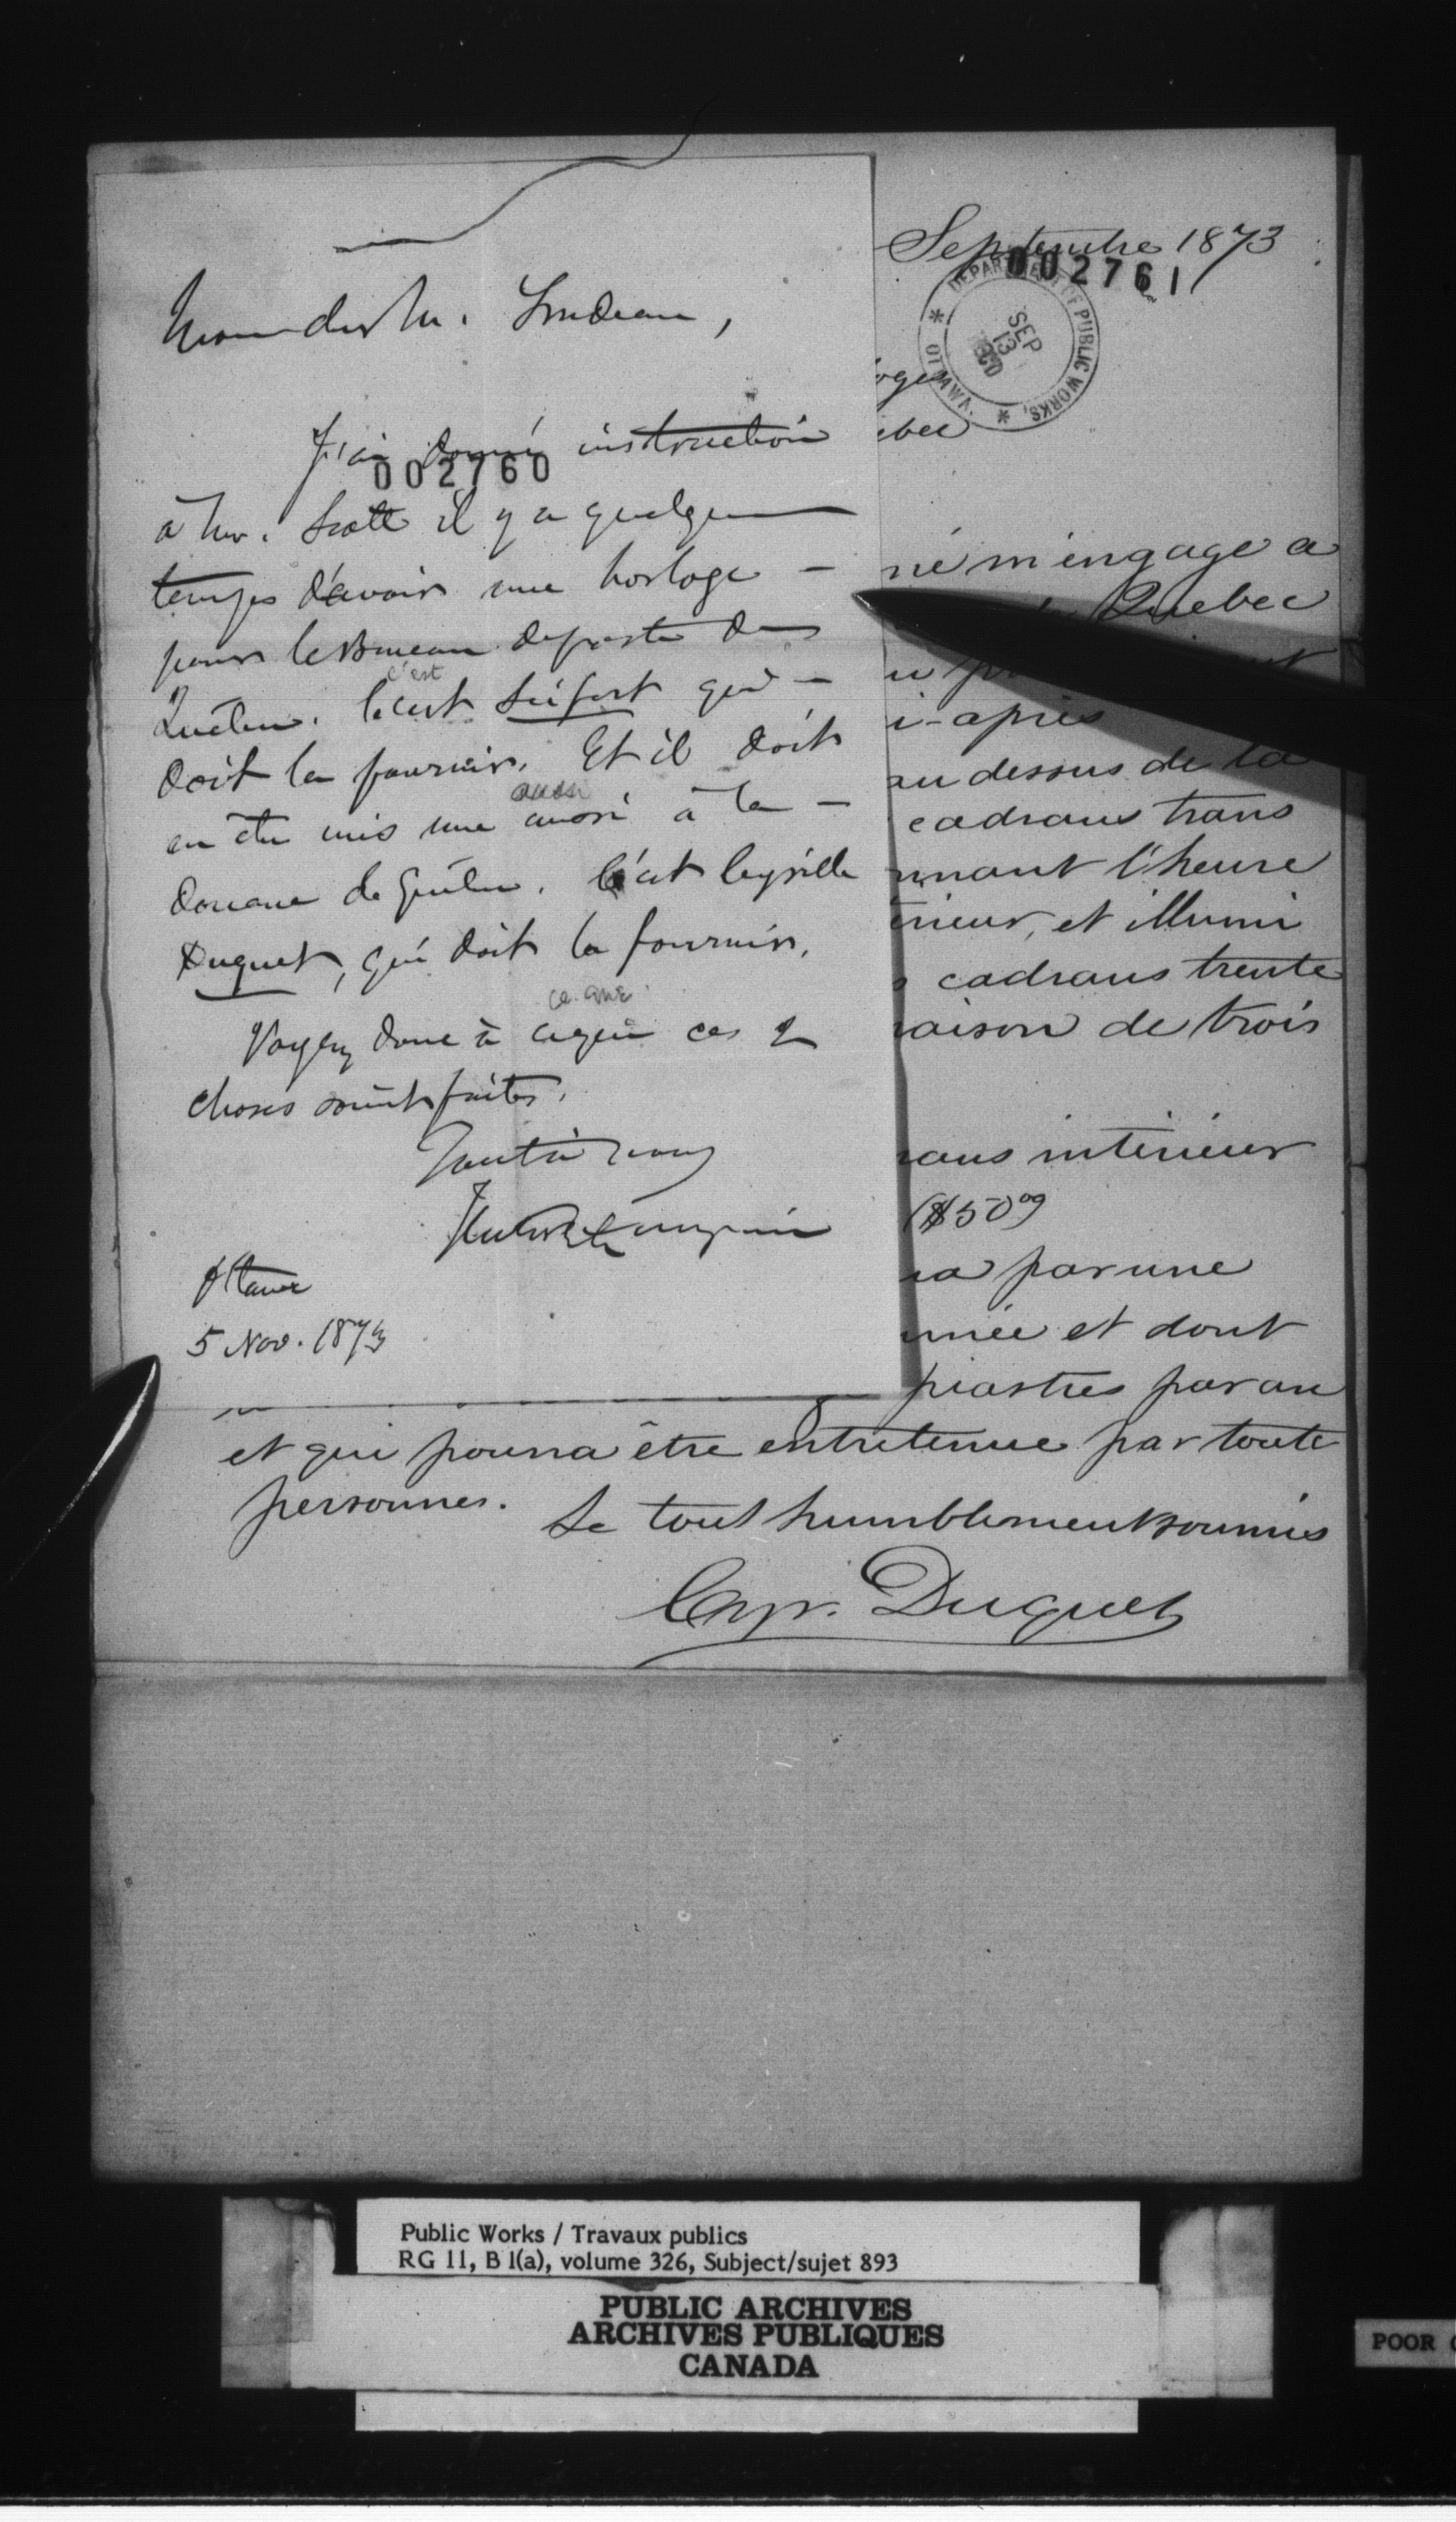 Mon cher M. Trudeau,
J'ai donné instruction
002760
à Mr. Scott il y a quelque
temps d'avoir une horloge —
pour le Bureau de poste de
c'est
Québec. C'est Seifert qui —
doit la fournir. Et il doit
aussi
en être mis une aussi à la —
douane de Québec. C'est Cyrille
Duquet, qui doit la fournir.
ce que
Voyez donc à ce que ces 2
choses soient faites.
Tout à vous
Hector L. Langevin
Ottawa
5 Nov. 1873
Septembre 1873
002761
DEPARTMENT OF PUBLIC WORKS, * OTTAWA. *
SEP
13
oges
ebec
né m'engage a
Quebec
i-après
au dessus de la
cadrans trans
nnant l'heure
erieur, et illumi
s cadrans trente
raison de trois
rans intérieur
($50 00
ra par une
année et dont
piastres par an
et qui pourra être entretenue par toute
personnes.
Le tout humblement soumis
Cyr. Duquet
Public Works / Travaux publics
RG 11, B 1(a), volume 326, Subject/sujet 893
PUBLIC ARCHIVES
ARCHIVES PUBLIQUES
CANADA
POOR